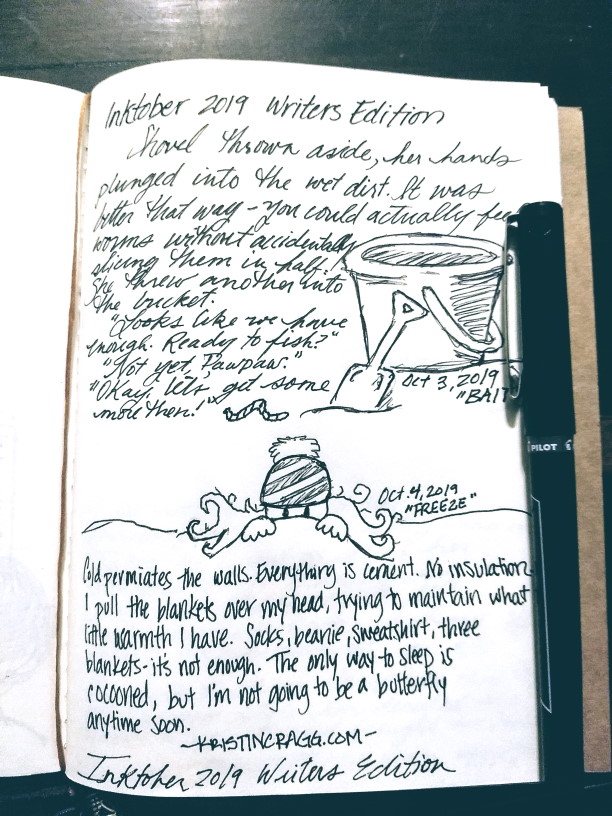 Inktober 2019 Writers Edition
Shovel thrown aside, her hands
plunged into the wet dirt. It was
better that way - you could actually feel
worms without accidentally
slicing them in half.
She threw another into
the bucket.
"Looks like we have
enough. Ready to fish?"
"Not yet, Pawpaw."
"Okay, let's get some
more then!"
Oct 3, 2019
"BAIT
Oct. 4, 2019
"FREEZE"
Cold permiates the walls. Everything is cement. No insulation.
I pull the blankets over my head, trying to maintain what
little warmth I have. Socks, beanie, sweatshirt, three
blankets - it's not enough. The only way to sleep is
cocooned, but I'm not going to be a butterfly
anytime soon.
-KRISTINCRAGG.COM-
Inktober 2019 Writers Edition
PILOT